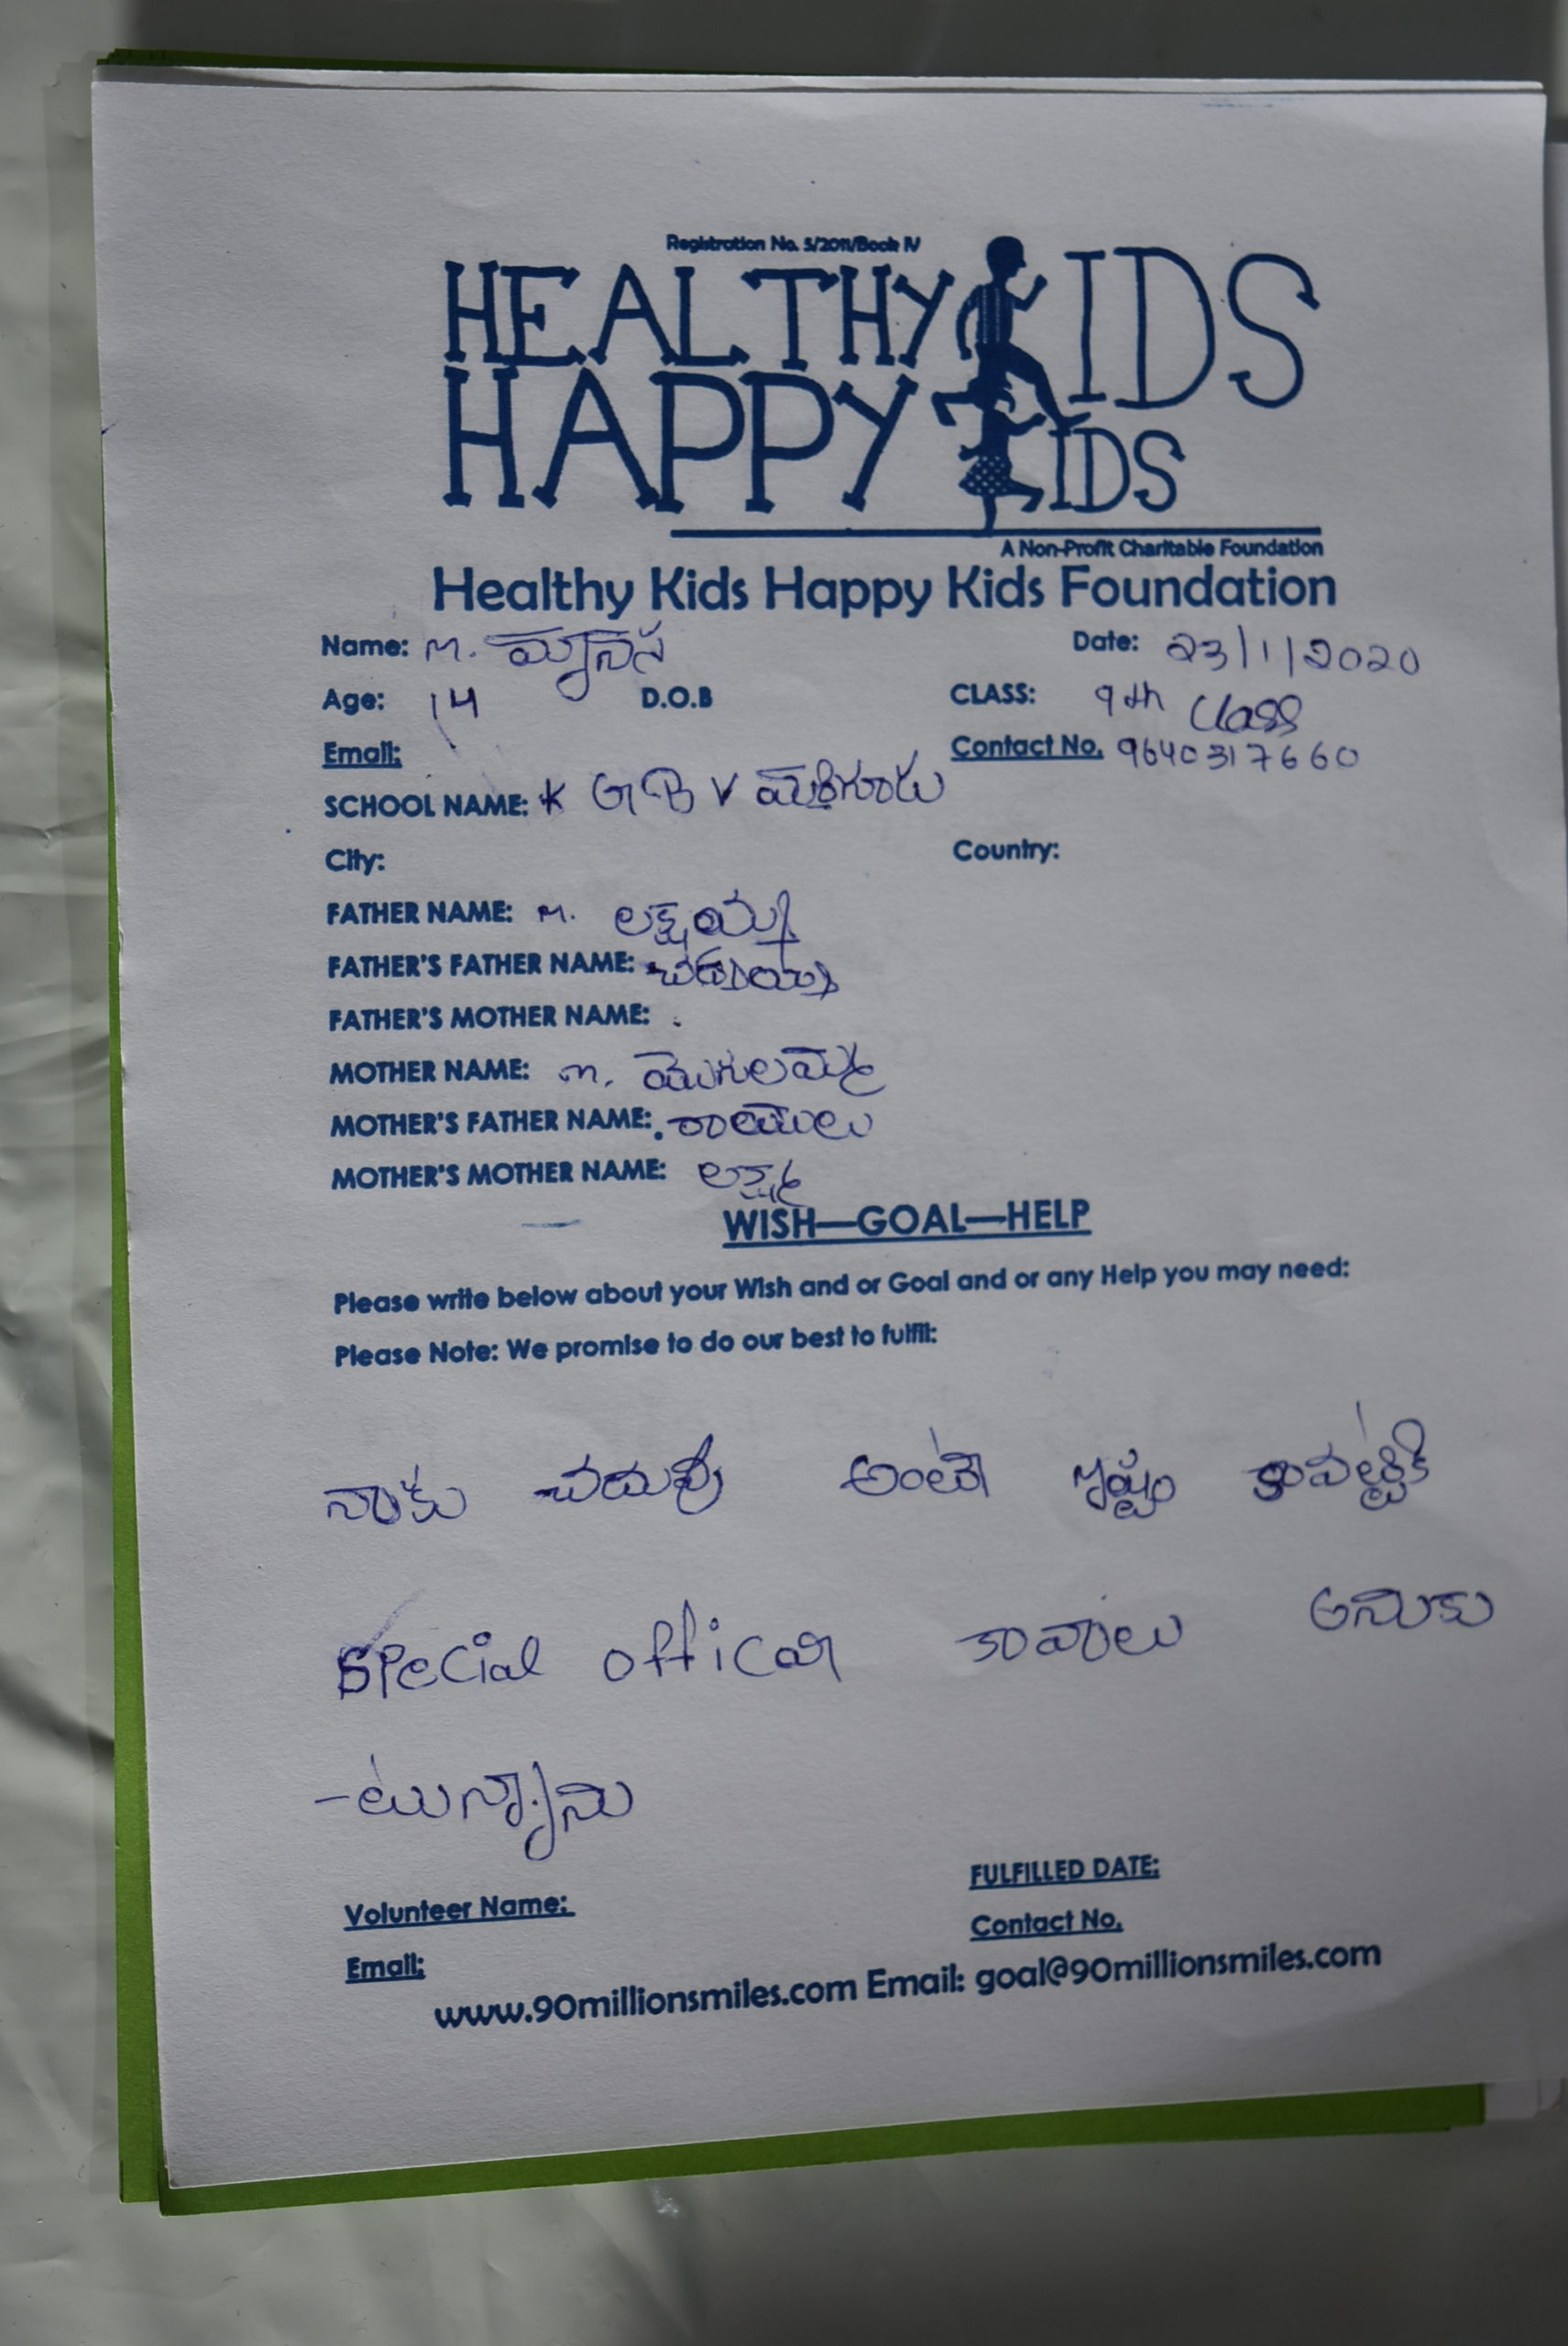 Registration No. 5/2011/Book IV
HEALTHY KIDS
HAPPY KIDS
A Non-Profit Charitable Foundation
Healthy Kids Happy Kids Foundation
Name: M. మానస Date: 23/1/2020
Age: 14 D.O.B CLASS: 9th class
Email: Contact No. 9640317660
SCHOOL NAME: K G B V మఠిగూడు
City: Country:
FATHER NAME: M. లక్ష్మయ్య
FATHER'S FATHER NAME:
FATHER'S MOTHER NAME:
MOTHER NAME: M. మొగులమ్మ
MOTHER'S FATHER NAME: రాములు
MOTHER'S MOTHER NAME: లక్ష్మి
WISH—GOAL—HELP
Please write below about your Wish and or Goal and or any Help you may need:
Please Note: We promise to do our best to fulfil:
నాకు చదువు అంటే ఇష్టం కాబట్టికి
special officer కావాలు అనుకు
-టున్నాను
FULFILLED DATE:
Volunteer Name:
Contact No.
Email:
www.90millionsmiles.com Email: goal@90millionsmiles.com